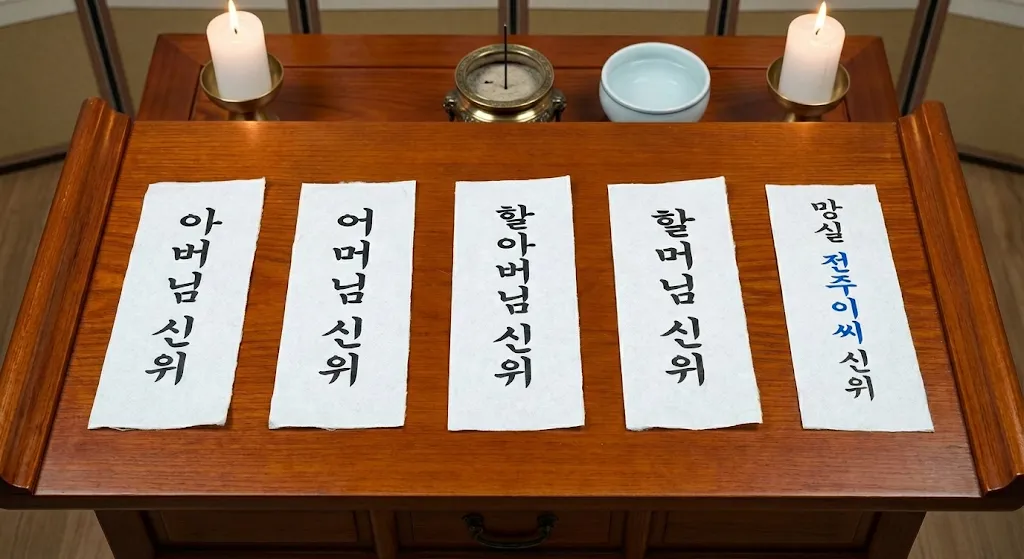 아버님 신위
어머님 신위
할아버님 신위
할머님 신위
망실 전주이씨 신위